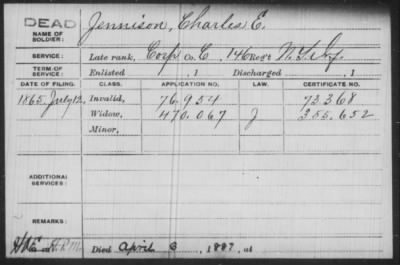 DEAD
NAME OF SOLDIER: Jennison, Charles E.
SERVICE: Late rank, Corp Co. C, 146 Reg't N.Y. Inf.
TERM OF SERVICE: Enlisted , 1 Discharged , 1
DATE OF FILING. CLASS. APPLICATION NO. LAW. CERTIFICATE NO.
1865 July 12, Invalid, 76.954 73368
Widow, 470.067 J 355.652
Minor,
ADDITIONAL SERVICES:
REMARKS:
Died April 6, 1887, at